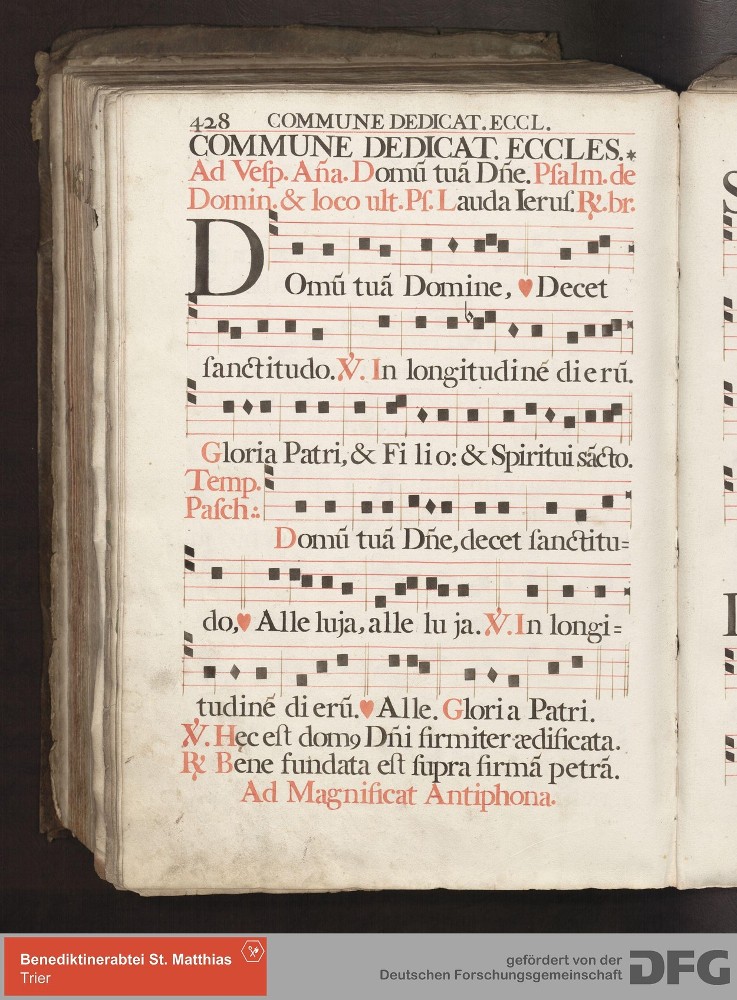 428 COMMUNE DEDICAT. ECCL.
COMMUNE DEDICAT. ECCLES.*
Ad Veſp. Aña. Domũ tuã Dñe. Pſalm. de
Domin. & loco ult. Pſ. Lauda Ieruſ. ℟. br.
DOmũ tuã Domine, ♥ Decet
ſanctitudo. ℣. In longitudinẽ dierũ.
Gloria Patri, & Filio: & Spiritui sãcto.
Temp.
Paſch:.
Domũ tuã Dñe, decet ſanctitu=
do, ♥ Alleluja, alleluja. ℣. In longi=
tudinẽ dierũ. ♥ Alle. Gloria Patri.
℣. Hęc eſt domꝯ Dñi firmiter ædificata.
℟ Bene fundata eſt ſupra firmã petrã.
Ad Magnificat Antiphona.
Benediktinerabtei St. Matthias
Trier
gefördert von der
Deutschen Forschungsgemeinschaft
DFG